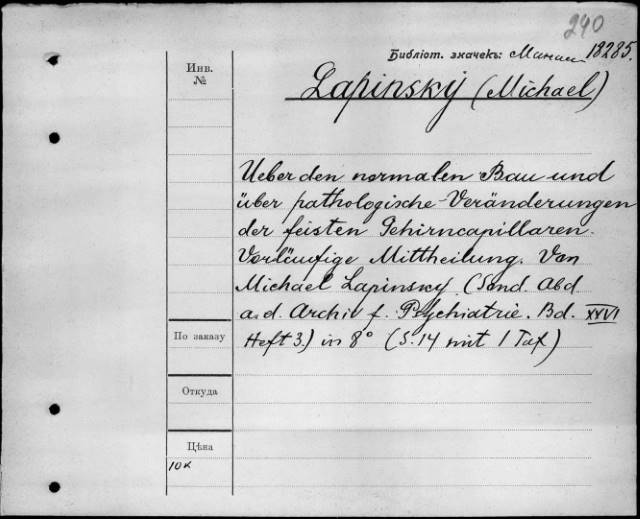 240
Библіот. значекъ: Манас 18285.
Инв. №
Lapinsky (Michael)
Ueber den normalen Bau und
über pathologische Veränderungen
der feisten Gehirncapillaren.
Vorläufige Mittheilung. Von
Michael Lapinsky (Sond. Abd
a. d. Archiv f. Psychiatrie. Bd. XXVI
Heft 3.) in 8° (S. 14 mit 1 Taf)
По заказу
Откуда
Цѣна
10к